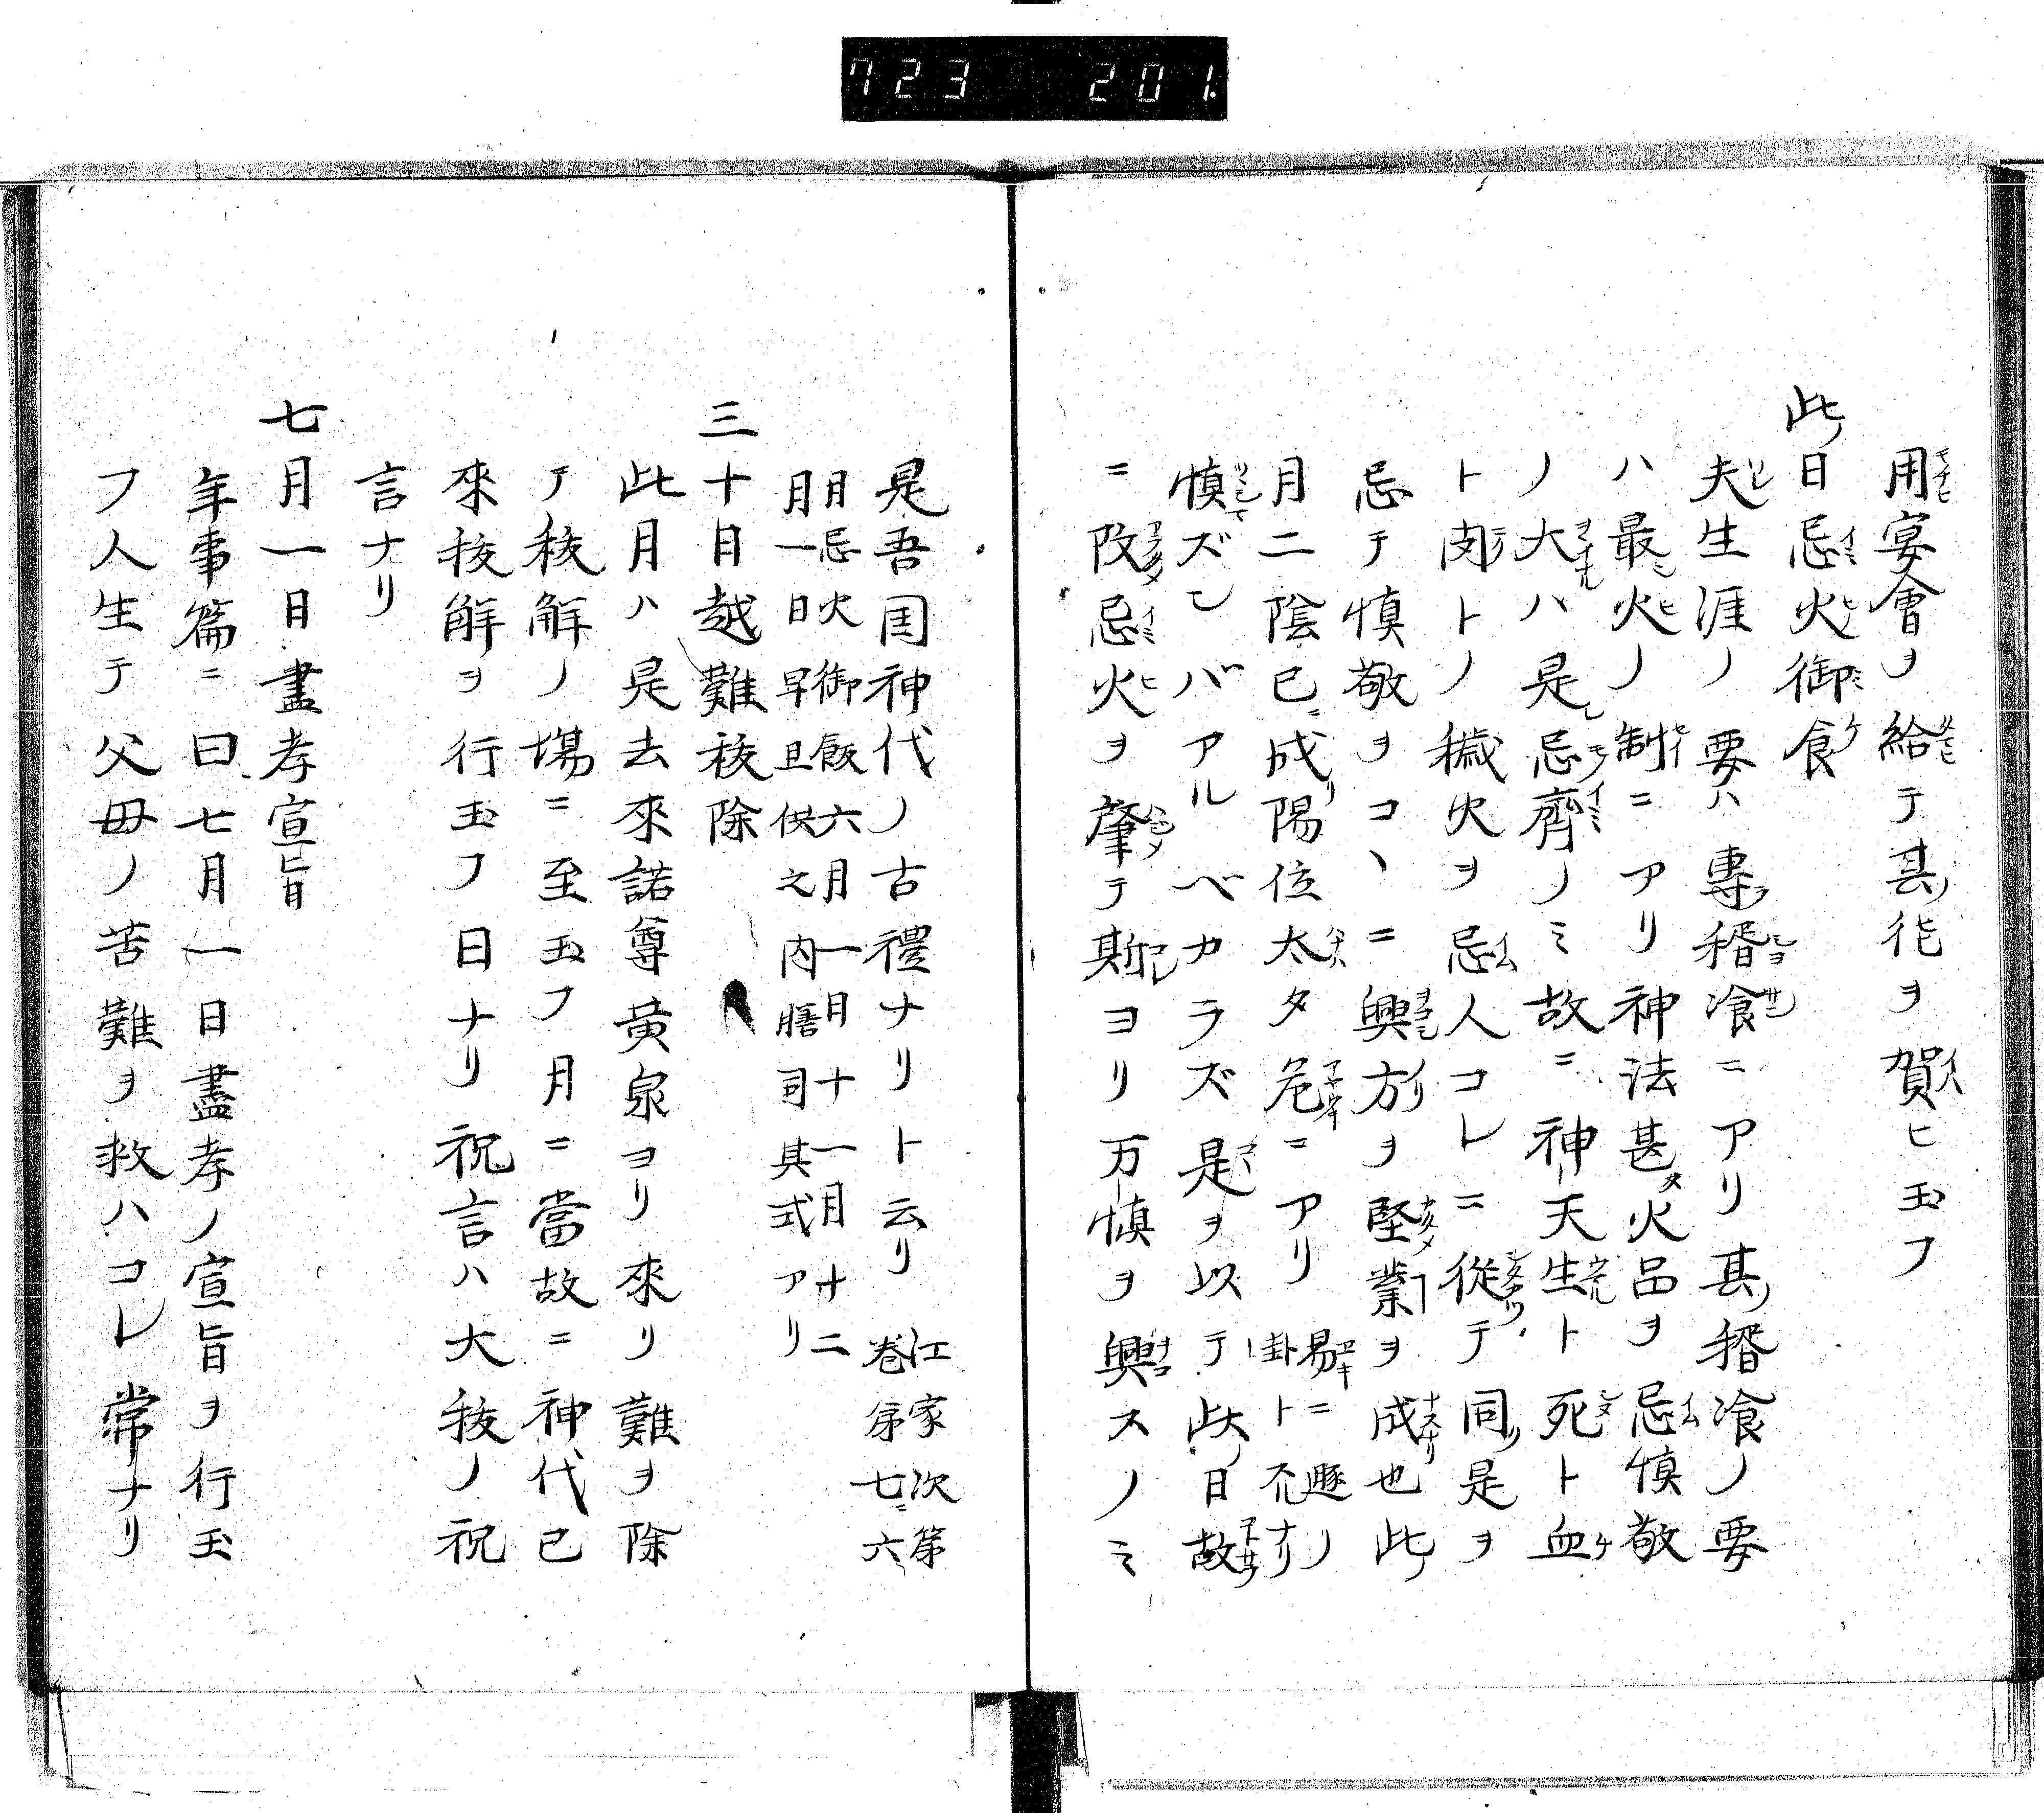 723 201
用宴會ヲ給テ其徃ヲ賀ヒ玉フ
此日忌火御食
夫生涯ノ要ハ專稰飡ニアリ其稰飡ノ要
ハ最火ノ制ニアリ神法甚火品ヲ忌慎敬
ノ大ハ是忌齊ノミ故ニ神天生ト死ト血
ト肉トノ穢火ヲ忌人コレニ從テ同是ヲ
忌テ慎敬ヲコヽニ興方ヲ堅業ヲ成也此
月二陰已ニ成陽位太タ危ニアリ
易ニ遯ノ
卦ト不ナリ
慎ズンバアルベカラズ是ヲ以テ此日故
ニ改忌火ヲ肇テ斯ヨリ万慎ヲ興スノミ
是吾国神代ノ古禮ナリト云リ
江家次第
巻第七ニ六
月忌火御飯六月一月十一月十二
月一日早旦供之内膳司其式アリ
三十日越難祓除
此月ハ是去來諾尊黄泉ヨリ來リ難ヲ除
テ祓解ノ塲ニ至玉フ月ニ當故ニ神代已
來祓解ヲ行玉フ日ナリ祝言ハ大祓ノ祝
言ナリ
七月一日盡孝宣旨
年事篇ニ曰七月一日盡孝ノ宣旨ヲ行玉
フ人生テ父毋ノ苦難ヲ救ハコレ常ナリ